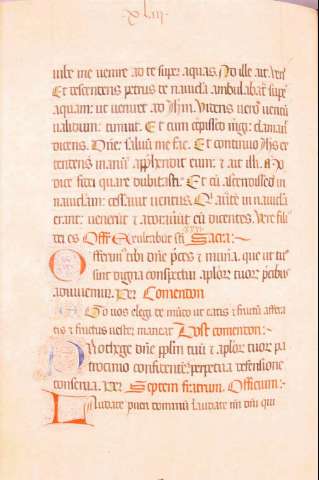 xliii
iube me uenire ad te super aquas. At ille ait. Ueni
Et descendens petrus de nauicla ambulabat supr
aquam: ut ueniret ad ihm. Uidens uero uentu
ualidum: timuit. Et cum cepisset mgi: clamauit
dicens. Dne saluu me fac. Et continuo ihs ex
tendens manu apphendit eum: et ait illi.
dice fidei quare dubitasti. Et cu ascendisset in
nauiclam: cessauit uentus. Qi aute in nauicla
erant: uenerut et adorauit eu dicentes. Uere fili
dei es Offm Exultabut sci Sacra:~
Offerimus tibi dne pces et munera. que ut tui
sint digna conspectui: aplor tuor pcibus
adiuuemur. Per Comendon
Ego uos elegi de mudo ut eatis et fructu affera
tis et fructus uester maneat Post comendon:~
Protege dne pplm tuu et aplor tuor pa
trocinio confidente perpetua defensione
conserua. Per Septem fratrum. Officium:~
Laudate pueri dominu laudate